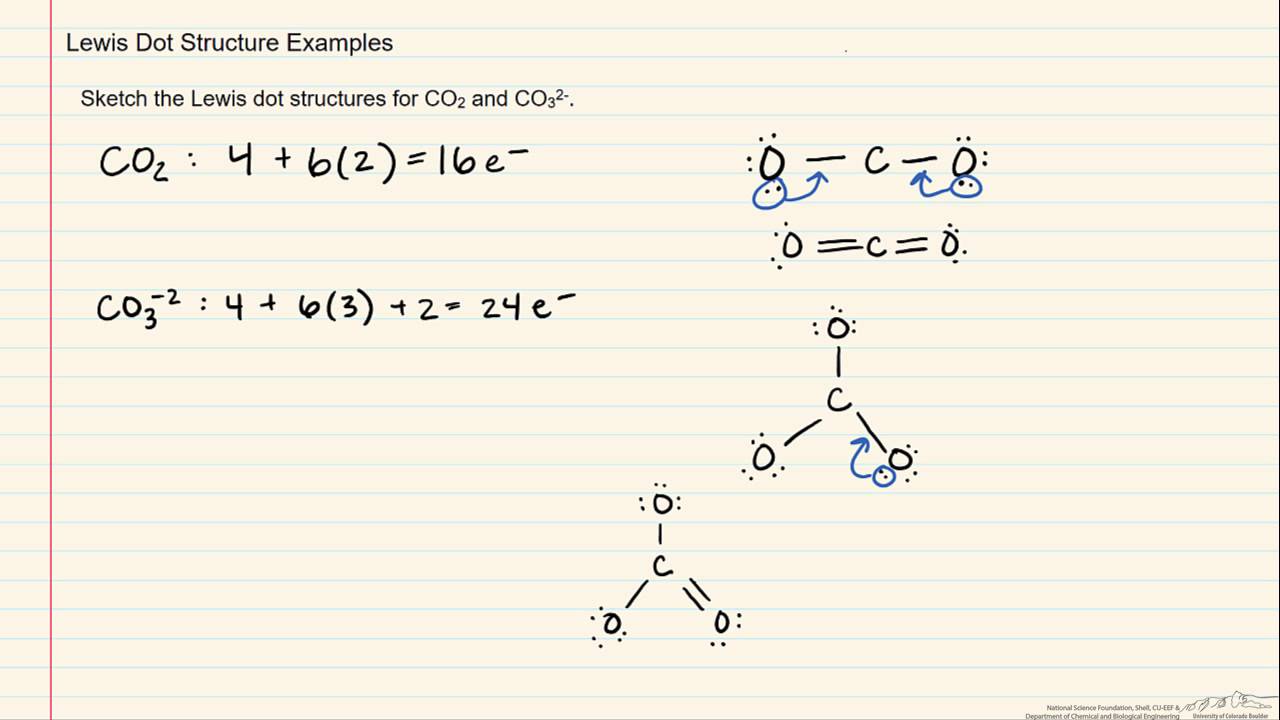 Lewis Dot Structure Examples
Sketch the Lewis dot structures for CO₂ and CO₃²⁻.
CO₂ : 4 + 6(2) = 16 e⁻
:Ö — C — Ö:
Ö = C = Ö
CO₃⁻² : 4 + 6(3) + 2 = 24 e⁻
:Ö:
C
O O
:Ö:
C
O O:
National Science Foundation, Shell, CU-EEF &
Department of Chemical and Biological Engineering
University of Colorado Boulder